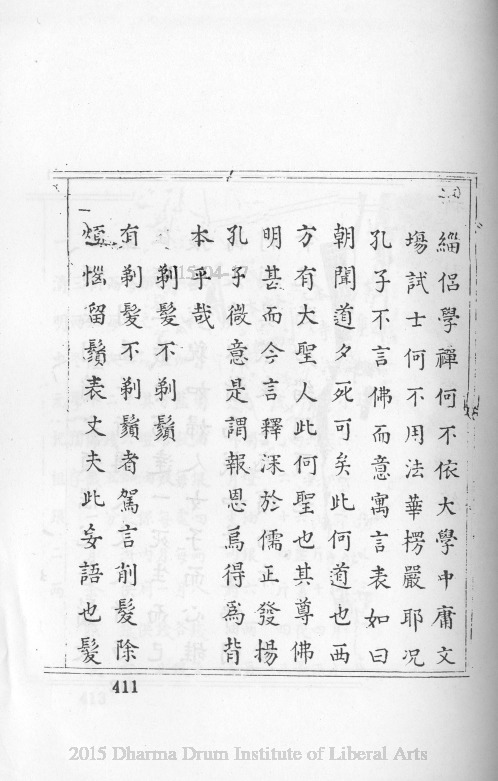 緇侶學禪何不依大學中庸文
塲試士何不用法華楞嚴耶况
孔子不言佛而意寓言表如曰
朝聞道夕死可矣此何道也西
方有大聖人此何聖也其尊佛
明甚而今言釋深於儒正發揚
孔子微意是謂報恩烏得為背
本乎哉
剃髮不剃鬚
有剃髮不剃鬚者駕言削髮除
煩惱留鬚表丈夫此妄語也髮
411
2015 Dharma Drum Institute of Liberal Arts